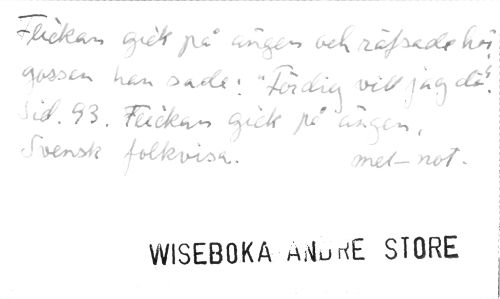 Flickan gick på ängen och räfsade hö,
gossen han sade: "För dig vill jag dö".
Sid. 93. Flickan gick på ängen,
Svensk folkvisa. mel-not.
WISEBOKA ANDRE STORE